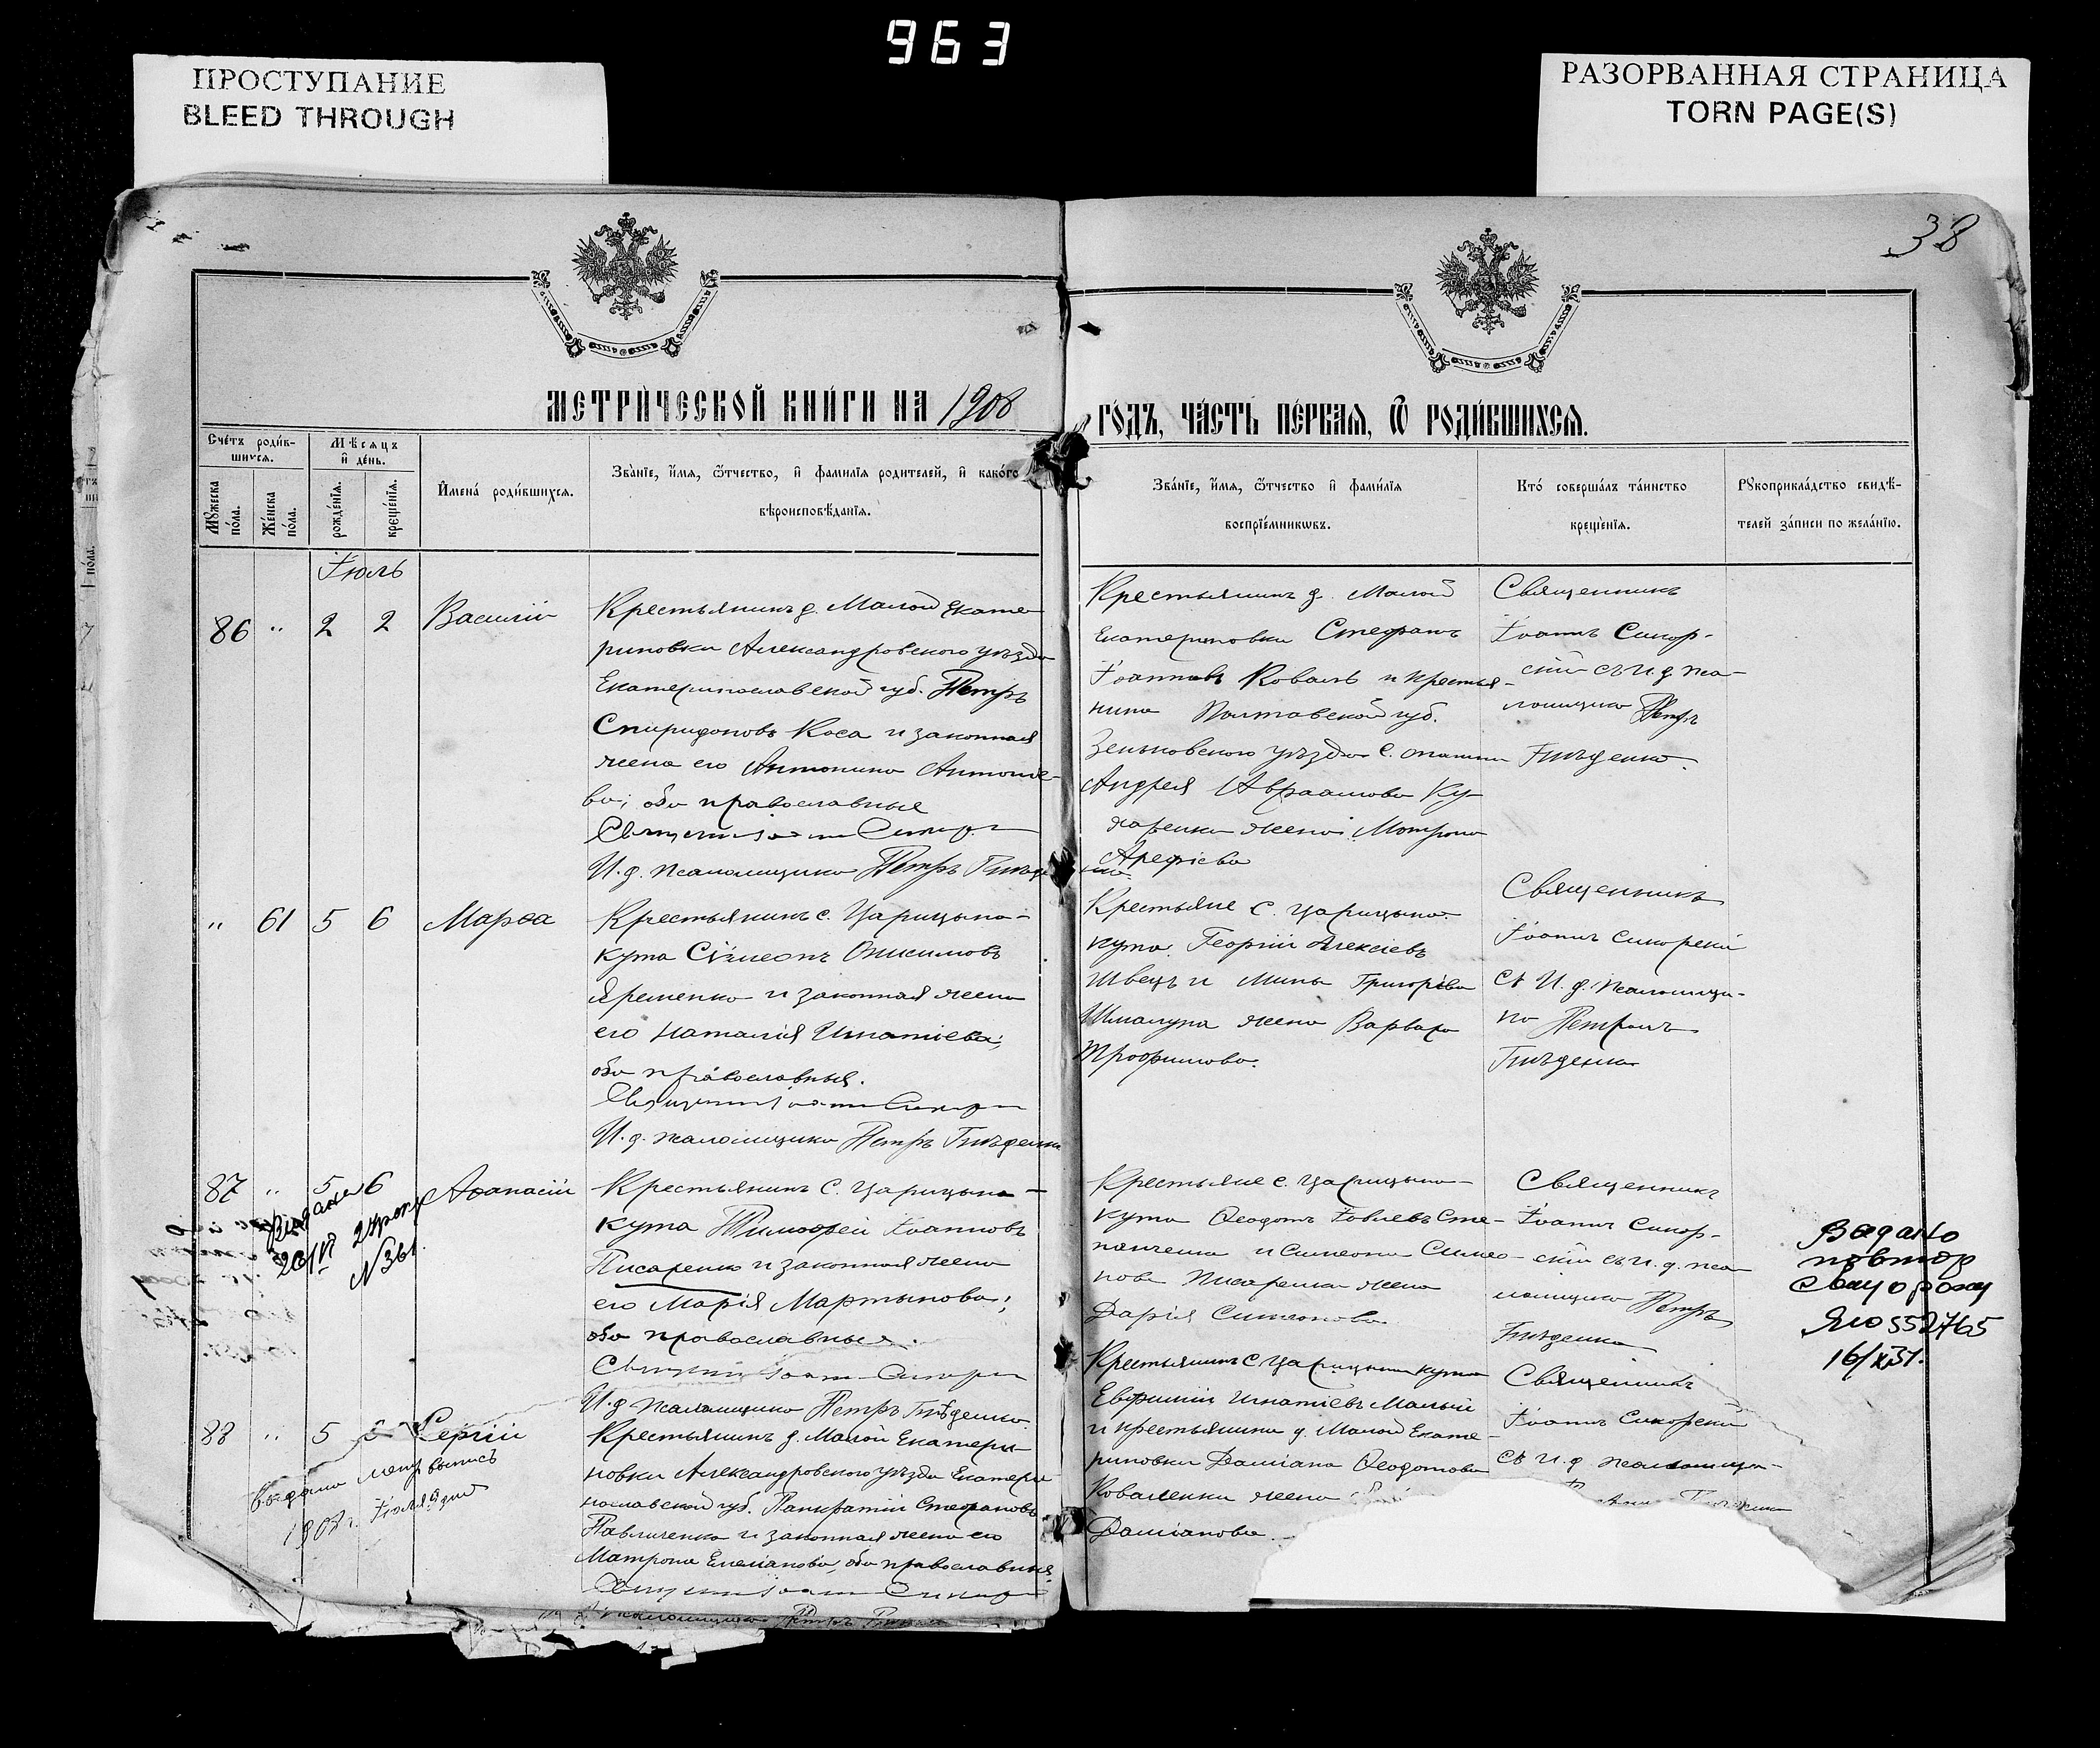 963
ПРОСТУПАНИЕ
BLEED THROUGH
РАЗОРВАННАЯ СТРАНИЦА
TORN PAGE(S)
38
МЕТРИЧЕСКОЙ КНИГИ НА 1908
ГОДЪ, ЧАСТЬ ПЕРВАЯ, Ѡ РОДИВШИХСЯ.
Счетъ родив-
шихся.
Мѣсяцъ
и день.
Мужеска
пола.
Женска
пола.
рожденія.
крещенія.
Имена родившихся.
Званіе, имя, ѿтчество, и фамилія родителей, и какого
вѣроисповѣданія.
Званіе, имя, ѿтчество и фамилія
воспріемниковъ.
Кто совершалъ таинство
крещенія.
Рукоприкладство свидѣ-
телей записи по желанію.
Іюль
86 " 2 2 Василій
Крестьянинъ д. Малой Екате-
риновки Александровскаго уѣзда
Екатеринославской губ. Петръ
Спиридоновъ Коса и законная
жена его Антонина Антоніе-
ва; оба православные
Священникъ Іоаннъ Сикорскій
И. д. псаломщика Петръ Гнѣденко
Крестьянинъ д. Малой
Екатериновки Стефанъ
Іоанновъ Коваль и крестья-
нина Полтавской губ.
Зеньковскаго уѣзда с.
Андрея Авраамова Ку-
харенки жена Мотрона
Арефіева
Священникъ
Іоаннъ Сикор-
скій съ и. д. пса-
ломщика Петръ
Гнѣденко.
" 61 5 6 Марѳа
Крестьянинъ с. Царицына-
кута Сѵмеонъ Онисимовъ
Яременко и законная жена
его Наталія Игнатіева;
оба православныя.
Священникъ Іоаннъ Сикорскій
И. д. псаломщика Петръ Гнѣденко
Крестьяне с. Царицына-
кута Георгій Алексіевъ
Швецъ и Мины Григорьева
Шмалука жена Варвара
Трофимова.
Священникъ
Іоаннъ Сикорскій
съ И. д. псаломщи-
ка Петромъ
Гнѣденко
87 " 5 6 Аѳанасій
Крестьянинъ с. Царицына-
кута Тимофей Іоанновъ
Писаренко и законная жена
его Марія Мартынова;
оба православныя.
Священникъ Іоаннъ Сикорскій
И. д. псаломщика Петръ Гнѣденко
Крестьяне с. Царицына-
кута Ѳеодотъ Іовлевъ Сте-
панченко и Симеона Симео-
нова Писаренка жена
Дарія Симеонова
Священникъ
Іоаннъ Сикор-
скій съ и. д. пса-
ломщика Петръ
Гнѣденко
Выдано
повтор
свид о рожд
ЯЮ 552765
16/XI 51.
88 " 5 6 Сергій
Крестьянинъ д. Малой Екатери-
новки Александровскаго уѣзда Екатери-
нославской губ. Панкратій Стефановъ
Павличенко и законная жена его
Матрона Емеліанова, оба православные.
Священникъ Іоаннъ Сикорскій
псаломщика Петръ
Крестьянинъ с. Царицына кута
Евфимій Игнатіевъ Малый
и крестьянина д. Малой Екате-
риновки Даміана Ѳеодотова
Коваленки жена
Даміанова.
Священникъ
Іоаннъ Сикорскій
съ и. д. псаломщи-
выдана метр выпись
1908 г. Іюля 9 дня